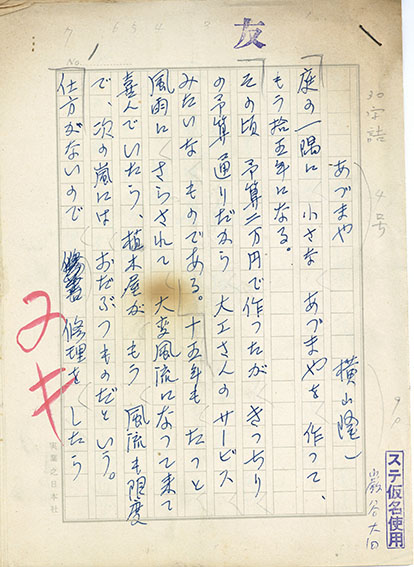 友
No. 1
30字詰 4号
あづまや
横山隆一
庭の一隅に 小さな あづまやを 作って、
もう拾五年になる。
その頃 予算二万円で作ったが きっちり
の予算通りだから 大工さんのサービス
みたいな ものである。十五年も たつと
風雨に さらされて 大変風流になって来て
喜んでいたら、植木屋が もう 風流も限度
で、次の嵐には おだぶつものだという。
仕方がないので 修理を したら
ヌキ
実業之日本社
ステ仮名使用
巌谷大四